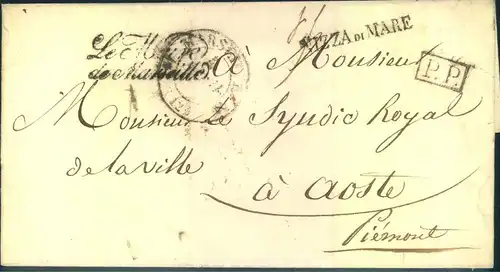 Le Maire
de Marseille
NIZZA DI MARE
P.P.
A Monsieur
Monsieur le Syndic Royal
de la ville
à Aoste
Piémont